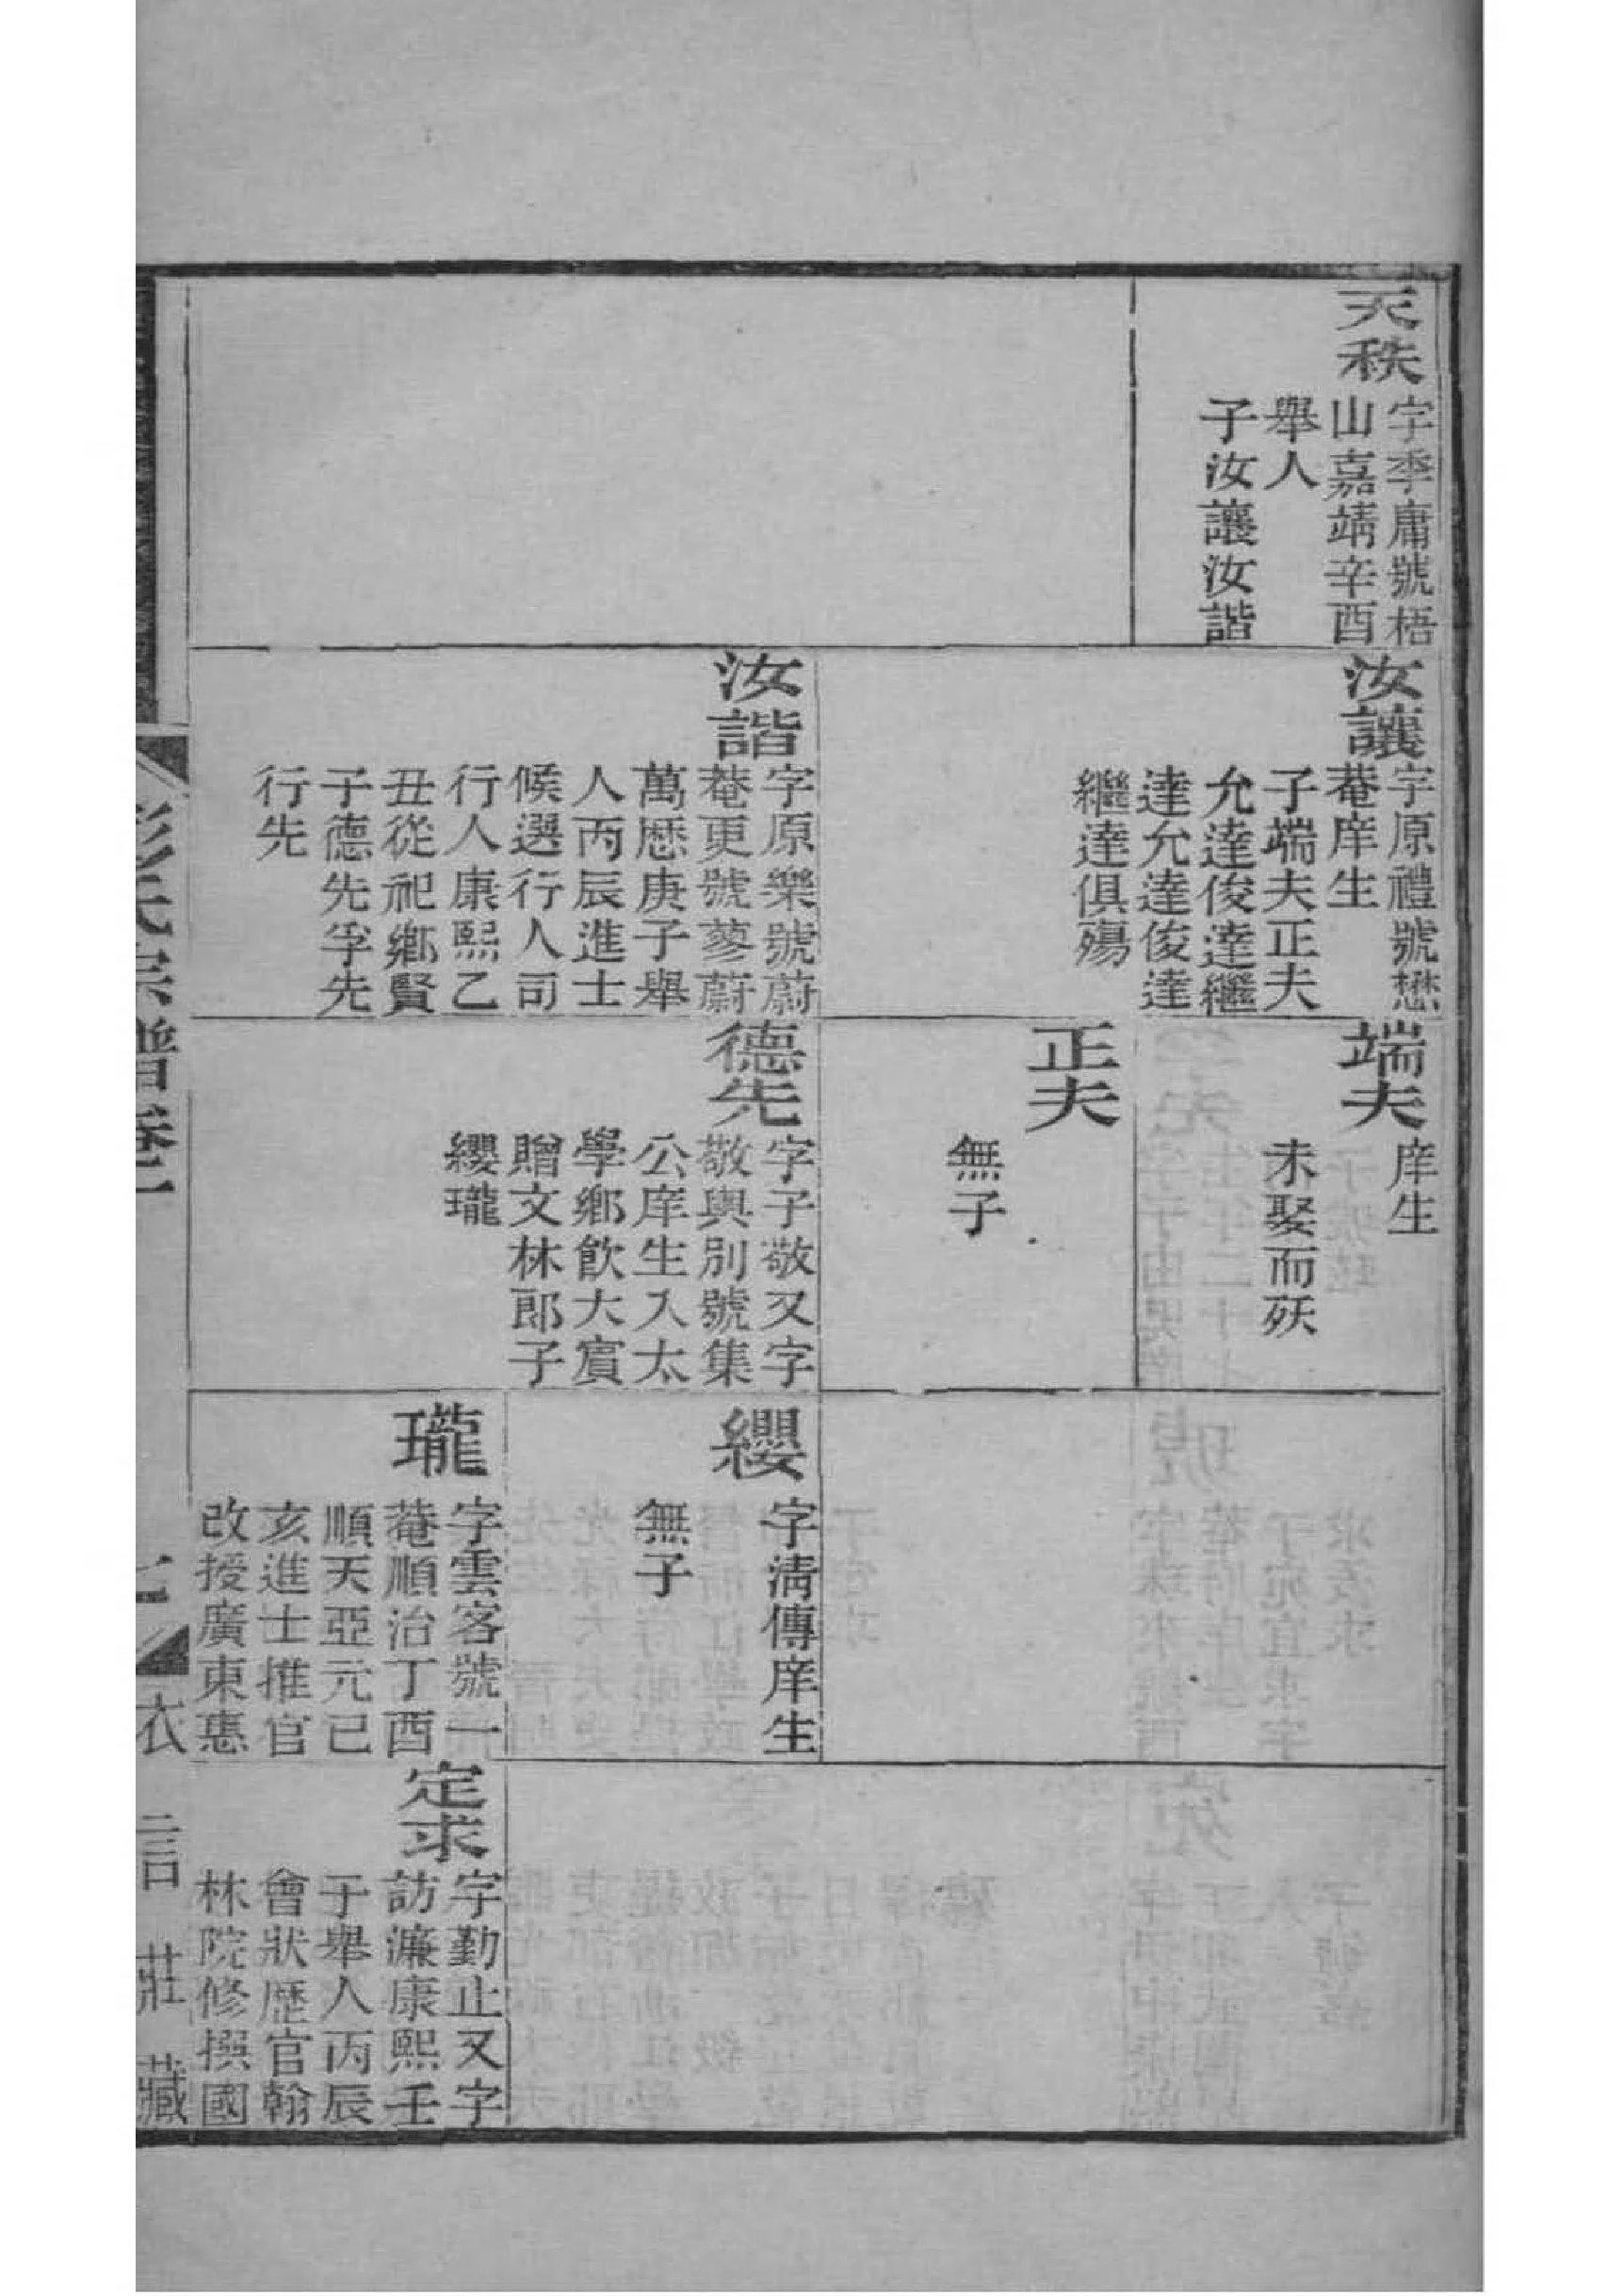 天秩
字季庸號梧
山嘉靖辛酉
舉人
子汝讓汝諧
汝讓
字原禮號懋
菴庠生
子端夫正夫
允達俊達繼
達允達俊達
繼達俱殤
汝諧
字原樂號蔚
菴更號蓼蔚
萬歷庚子舉
人丙辰進士
候選行人司
行人康熙乙
丑從祀鄉賢
子德先孚先
行先
端夫
庠生
未娶而殀
正夫
無子
德先
字子敬又字
敬輿別號集
公庠生入太
學鄉飲大賔
贈文林郎子
纓瓏
纓
字淸傳庠生
無子
瓏
字雲客號一
菴順治丁酉
順天亞元己
亥進士推官
改授廣東惠
定求
字勤止又字
訪濂康熙壬
子舉人丙辰
會狀歷官翰
林院修撰國
彭氏宗譜卷二
七
衣言莊藏